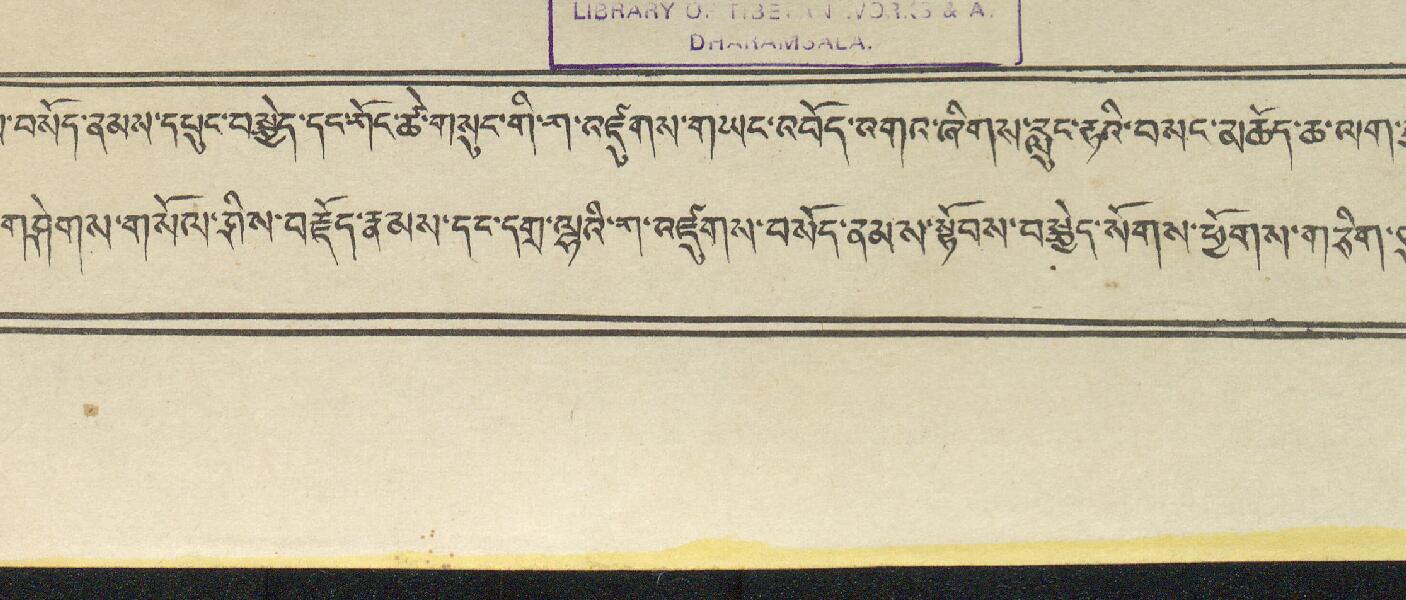 LIBRARY OF TIBETAN WORKS & A.
DHARAMSALA.
བསོད་ནམས་དཔུང་བསྐྱེད་དང་ཤོད་ཚེ་གསུང་གི་ཤ་འཛུགས་གཡང་འབོད་འགའ་ཞིགས་རླུང་རྟའི་བསང་མཆོད་ཆ་ལག་
གཤེགས་གསོལ་གྲིས་བརྗོད་རྣམས་དང་དགྲ་ལྷའི་ཤ་འཛུགས་བསོད་ནམས་སྟོབས་བསྐྱེད་སོགས་ཕྱོགས་གཅིག་